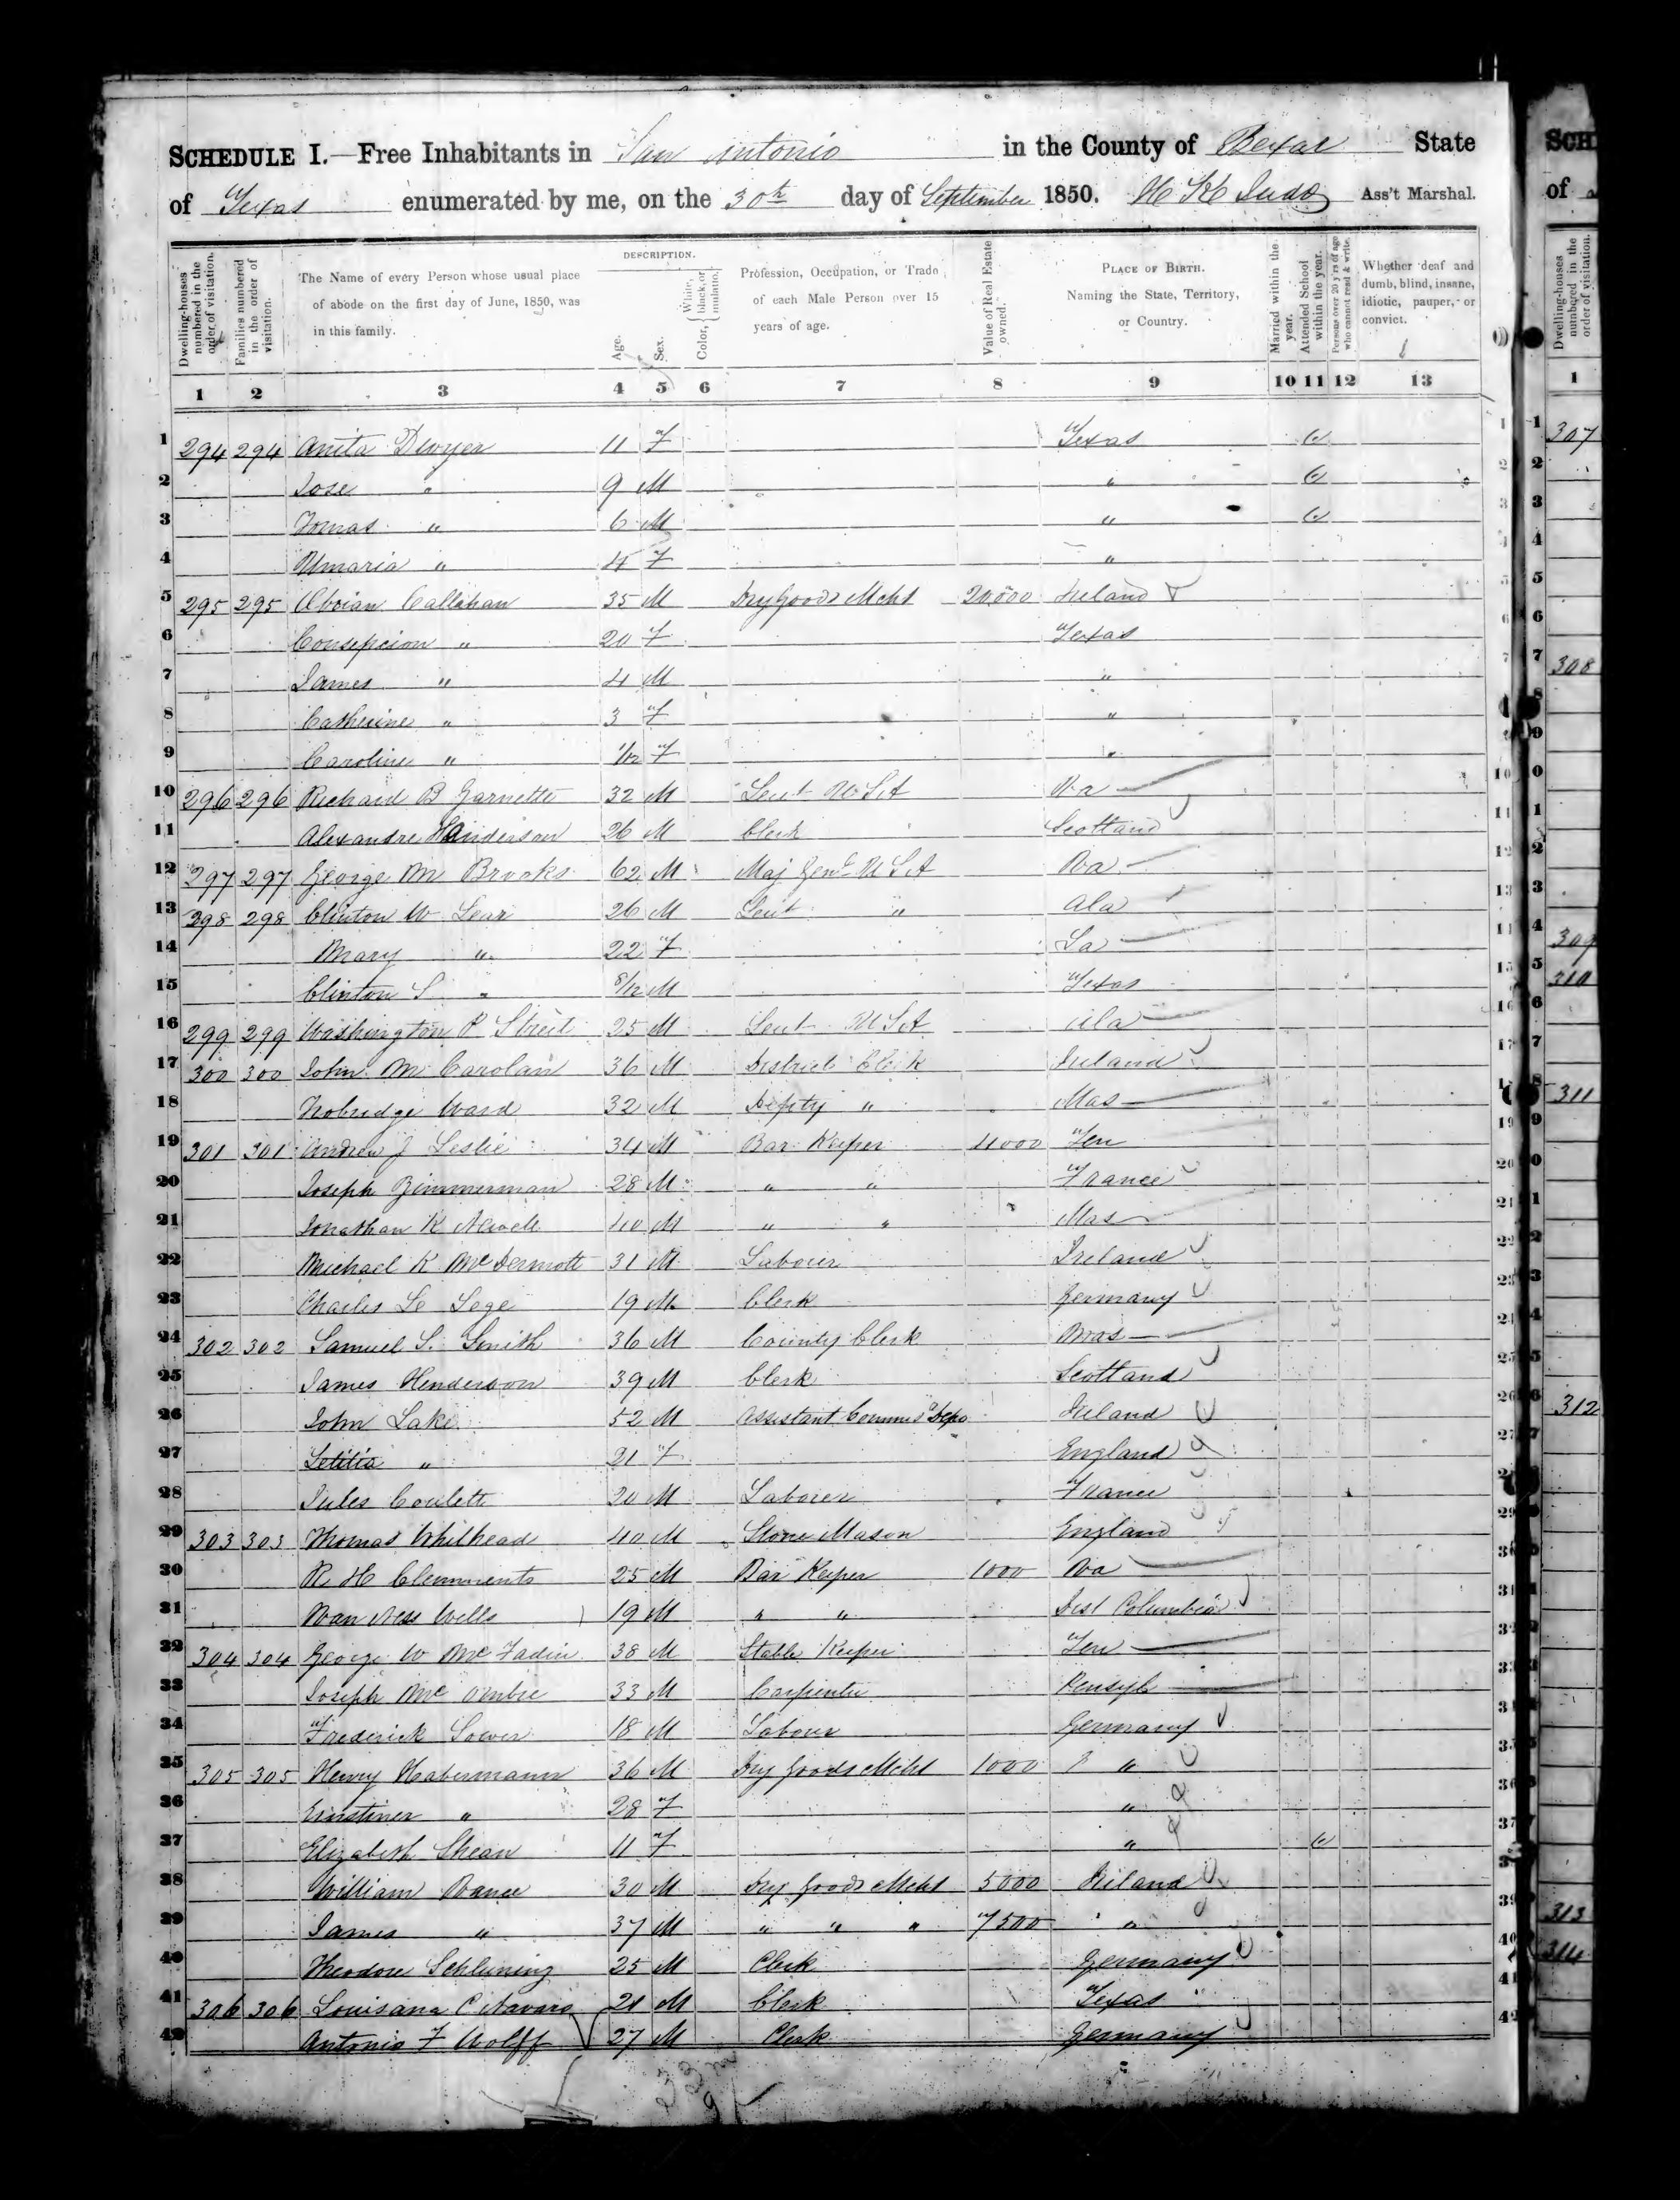 SCHEDULE I.—Free Inhabitants in San Antonio in the County of Bexar State
of Texas enumerated by me, on the 30th day of September 1850. Ass't Marshal.
DESCRIPTION.
Dwelling-houses numbered in the order of visitation.
Families numbered in the order of visitation.
The Name of every Person whose usual place of abode on the first day of June, 1850, was in this family.
Age.
Sex.
Color, White, black, or mulatto.
Profession, Occupation, or Trade of each Male Person over 15 years of age.
Value of Real Estate owned.
PLACE OF BIRTH. Naming the State, Territory, or Country.
Married within the year.
Attended School within the year.
Persons over 20 y'rs of age who cannot read & write.
Whether deaf and dumb, blind, insane, idiotic, pauper, or convict.
1 2 3 4 5 6 7 8 9 10 11 12 13
1 294 294 Anita Dwyer 11 F Texas
2 Jose " 9 M "
3 Tomas " 6 M "
4 " 4 F "
5 295 295 Callahan 35 M Dry Goods Mcht 20,000 Ireland
6 Consepcion " 20 F Texas
7 James " 4 M "
8 Catherine " 3 F "
9 Caroline " 1/12 F "
10 296 296 Richard B Garnette 32 M Leut U S A Va
11 Alexandre 26 M Clerk Scotland
12 297 297 George M Brooks 62 M Maj Genl U S A Va
13 298 298 Clinton W Lear 26 M Leut " Ala
14 Mary " 22 F La
15 Clinton L " 8/12 M Texas
16 299 299 Washington P Street 25 M Leut U S A Ala
17 300 300 John M Carolan 36 M District Clerk Ireland
18 Ward 32 M Depty " Mas
19 301 301 Andrew J Leslie 34 M Bar Keeper 4000 Ten
20 Joseph Zimmerman 28 M " " France
21 Jonathan K 40 M " " Mas
22 Michael K McDermott 31 M Labourer Ireland
23 Charles Le Sege 19 M Clerk Germany
24 302 302 Samuel S. Smith 36 M County Clerk Mas
25 James Henderson 39 M Clerk Scotland
26 John Lake 52 M Assistant Ireland
27 Letitia " 21 F England
28 Jules Coulett 20 M Laborer France
29 303 303 Thomas Whithead 40 M Stone Mason England
30 R H Clemments 25 M Bar Keeper 1000 Va
31 Van Ness Wells 19 M " " Dist Columbia
32 304 304 George W McFadin 38 M Stable Keeper Ten
33 Joseph Mc 33 M Carpenter
34 Frederick Sower 18 M Labour Germany
35 305 305 Henry Habermann 36 M Dry Goods Mcht 1000 "
36 " 28 F "
37 Elizabeth Shean 11 F "
38 William Vance 30 M Dry Goods Mcht 5000 Ireland
39 James " 37 M " " " 7500 "
40 Theodore Schleuning 25 M Clerk Germany
41 306 306 Louisana C Navaro 21 M Clerk Texas
42 Antonio F Wolff 27 M Clerk Germany
SCH
of
Dwelling-houses numbered in the order of visitation.
1
307
308
309
310
311
312
313
314